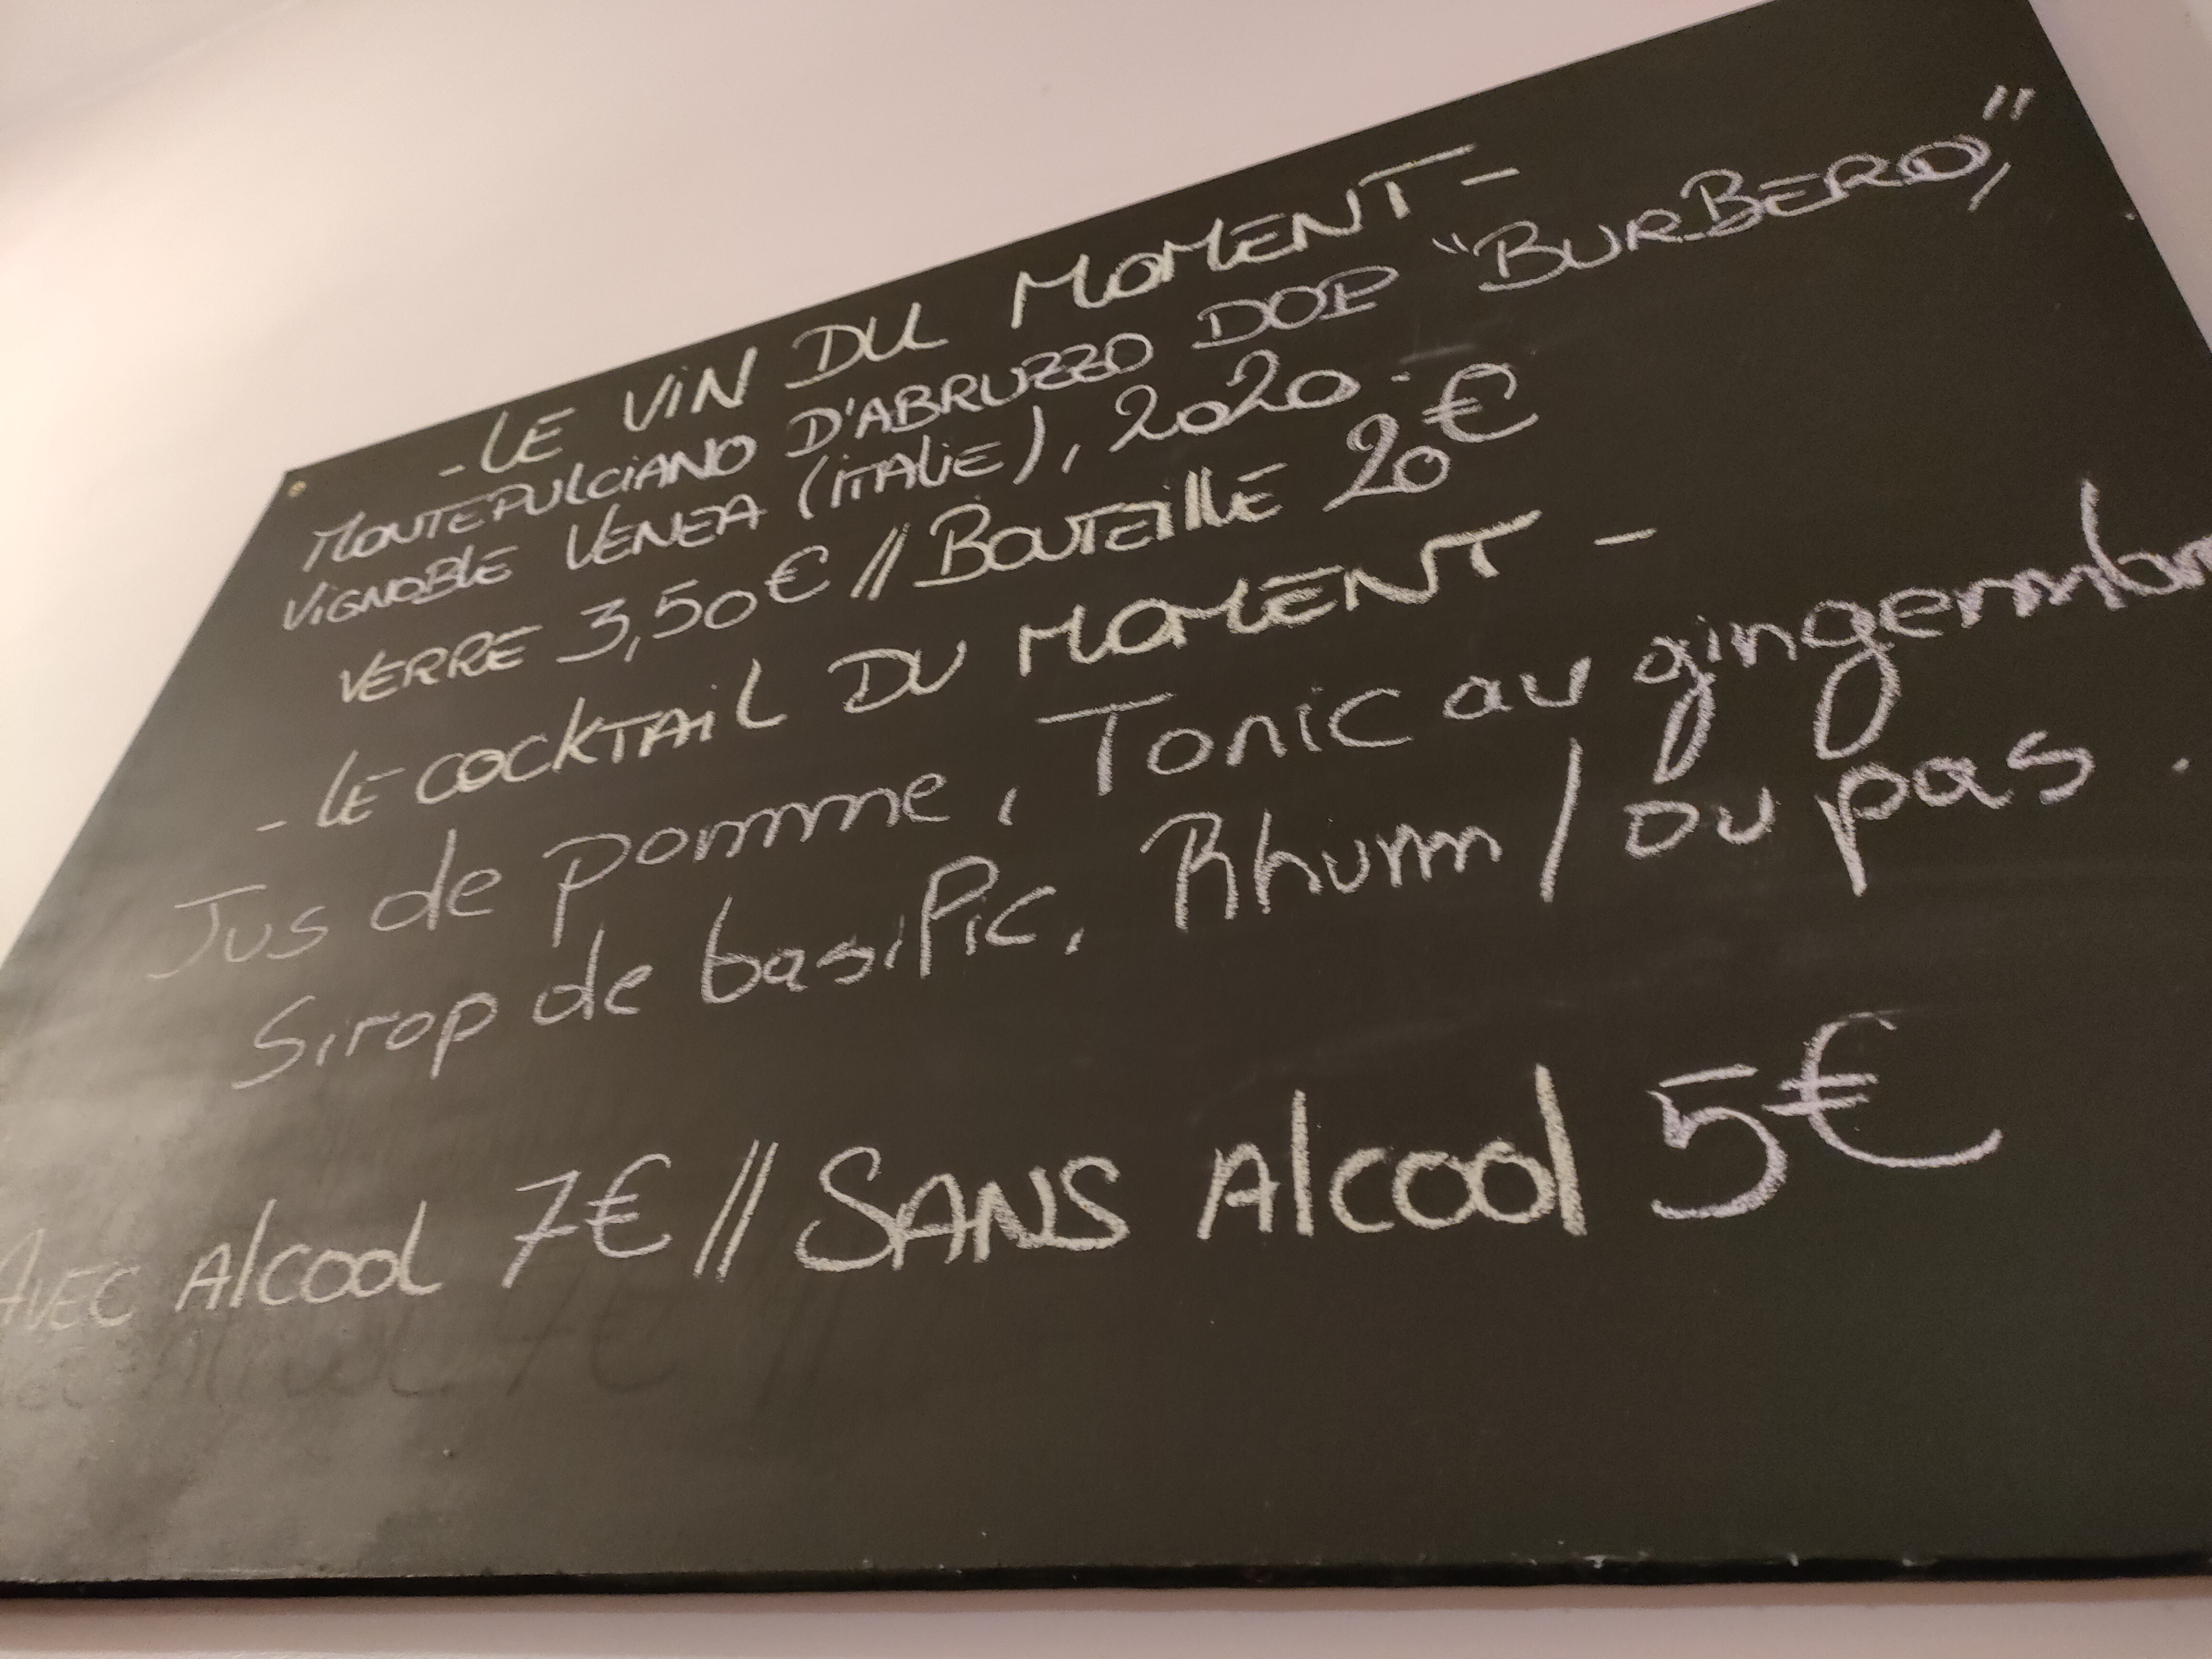 - LE VIN DU MOMENT -
MONTEPULCIANO D'ABRUZZO DOP "BURBERO",
VIGNOBLE VENEA (ITALIE), 2020.
VERRE 3,50€ // BOUTEILLE 20€
- LE COCKTAIL DU MOMENT -
Jus de pomme, Tonic au gingembr
Sirop de basilic, Rhum / ou pas.
AVEC Alcool 7€ // SANS Alcool 5€